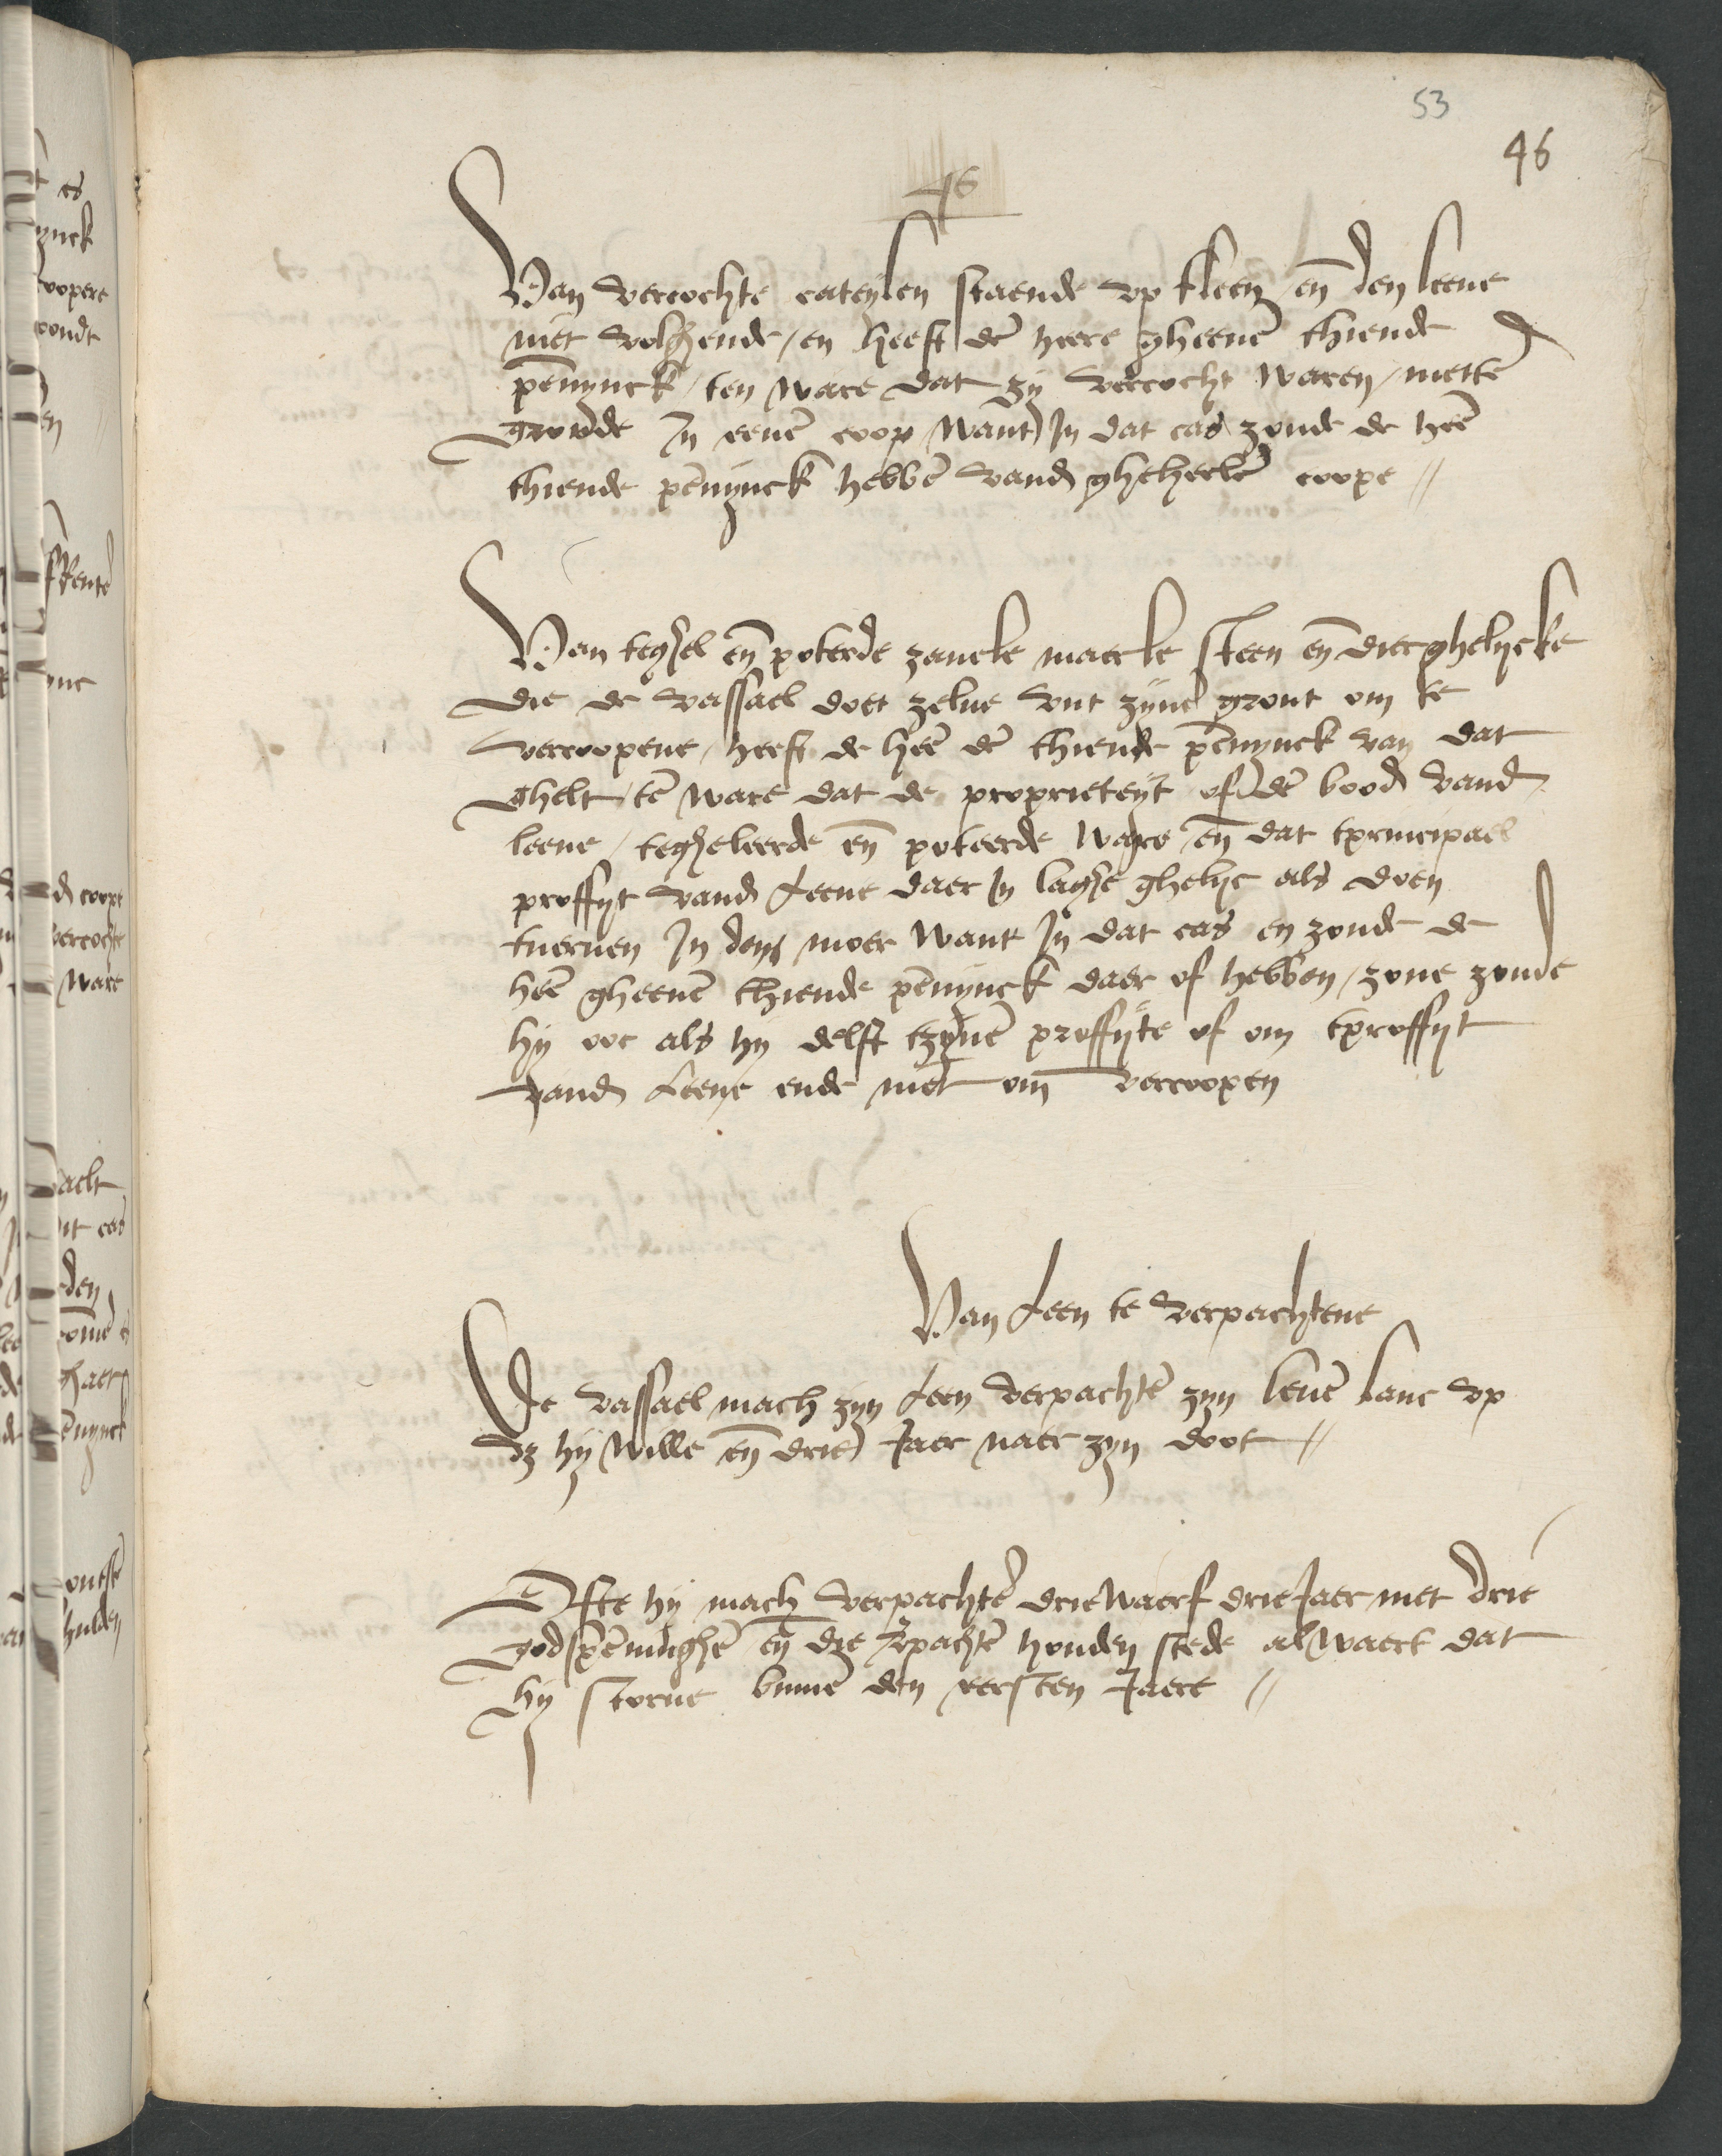 53
46
46
Van vercochte cateylen staende vp tleen en̄ den leene
niet volghende / en heeft de heere gheenē thiende
pēnynck / ten ware dat zy vercocht waren / mettē
gronde In eenē coop want In dat cas zoude de heē
thiende pēnynck hebbē vand gheheelē coope //
Van teghel en̄ poterde zavele maerle steen en̄ dierghelycke
die de vassael doet zelue vut zynē gront om te
vercoopene / heeft de heē dē thiende pēnynck van dat
ghelt / tē ware dat de proprieteyt of dē bood vand
leene / tegheleerde en̄ poteerde ware / en̄ dat tprincipael
proffyt vand Leene daer In laghe ghelyc als doen
tueruen In den moer want In dat cas en zoude de
heē gheenē thiende pēnynck daer of hebben / zone zoude
hy ooc als hy delft tzynē proffyte of om tproffyt
vand Leene ende niet om̄ vercoopen
Van Leen te verpachtene
De vassael mach zyn Leen verpachtē zyn leuē lanc vp
dz hy wille en̄ drie Jaer naer zyn doot //
Ofte hy mach verpachtē driewaerf drie Jaer met drie
godspēninghē en̄ die vpachtē houden stede al waert dat
hy storue binnē den eersten Jaere //
es
ynck
coopere
vondt
en
Rente
ync
d coope
vercochte
ware
acht
dit cas
den
ghaet
ēnynck
hulden